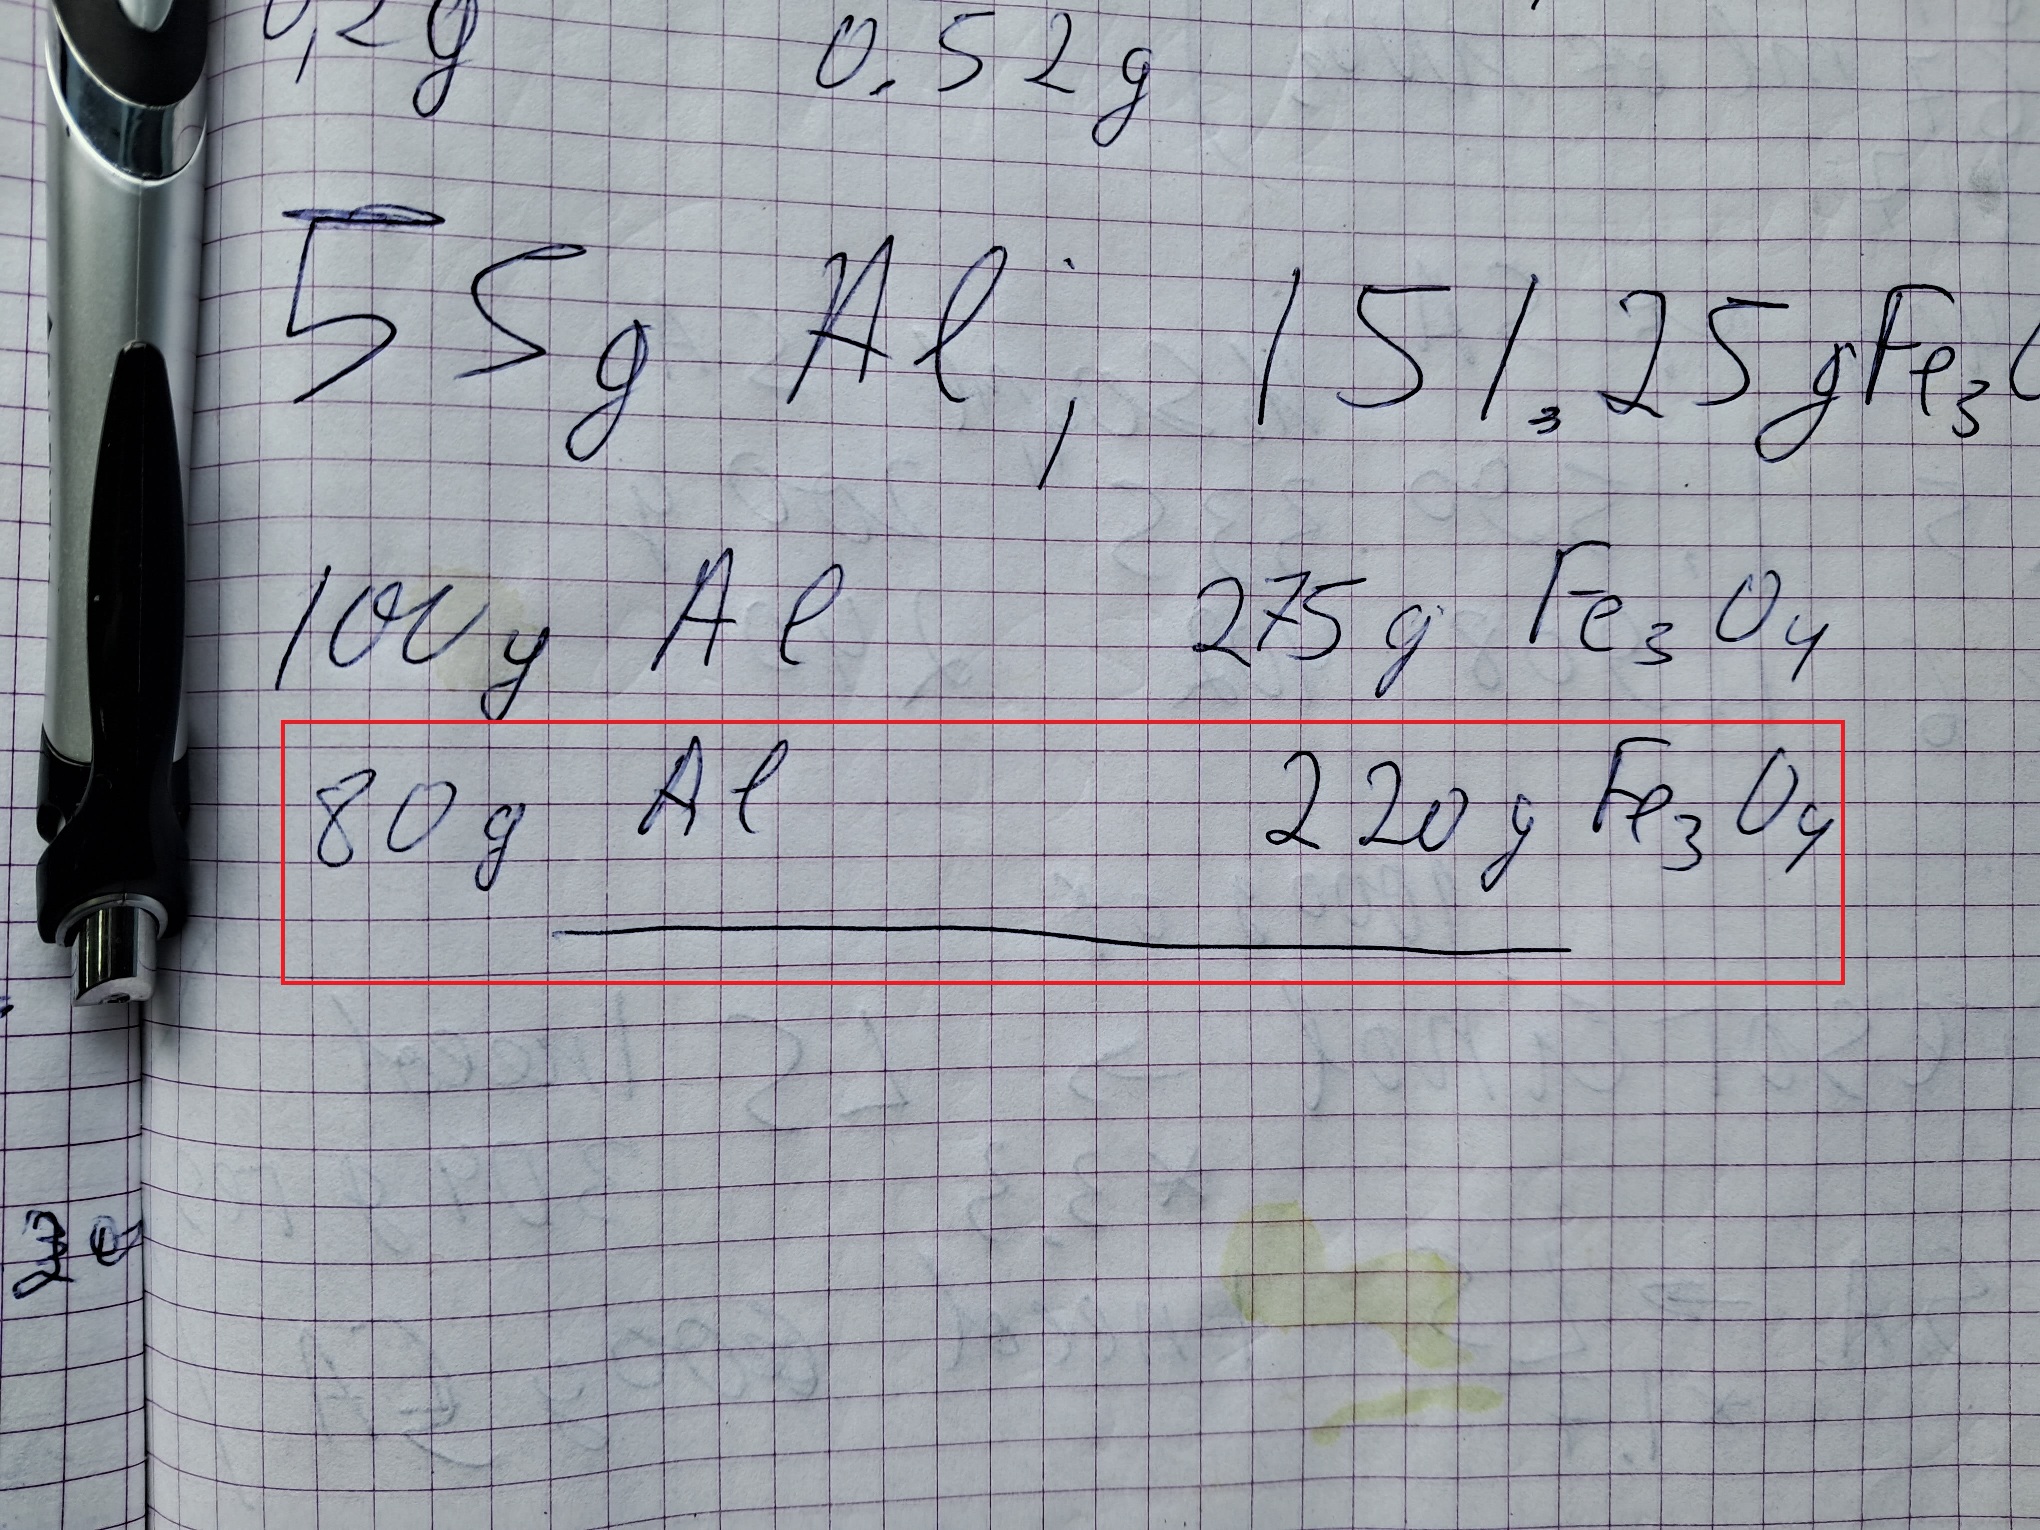 0,2g 0.52g
55g Al, 151,25gFe₃O
100g Al 275g Fe₃O₄
80g Al 220g Fe₃O₄